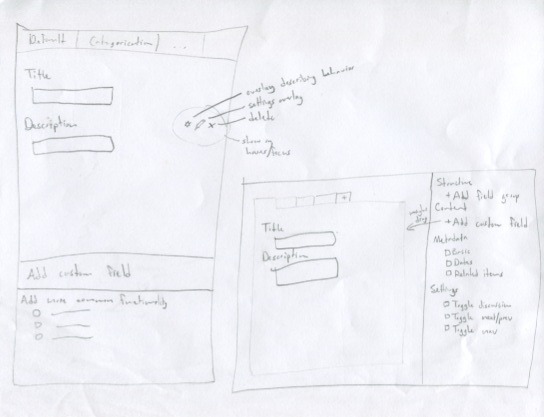 Default Categorization ...
Title
Description
overlay describing behavior
settings overlay
delete
show on
hover/focus
Add custom field
Add more common functionality
Title
Description
Structure
+ Add field group
Content
+ Add custom field
Metadata
Basic
Dates
Related items
Settings
Toggle discussion
Toggle next/prev
Toggle nav